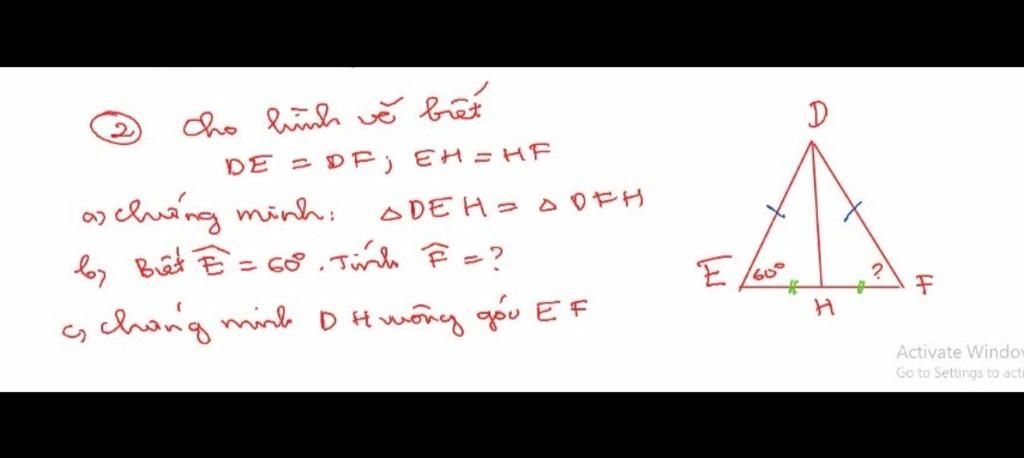 ② Cho hình vẽ biết
DE = DF; EH = HF
a) chứng minh: △DEH = △DFH
b) Biết Ê = 60°. Tính F̂ = ?
c) chứng minh DH vuông góc EF
D
E 60° ? F
H
Activate Window
Go to Settings to acti